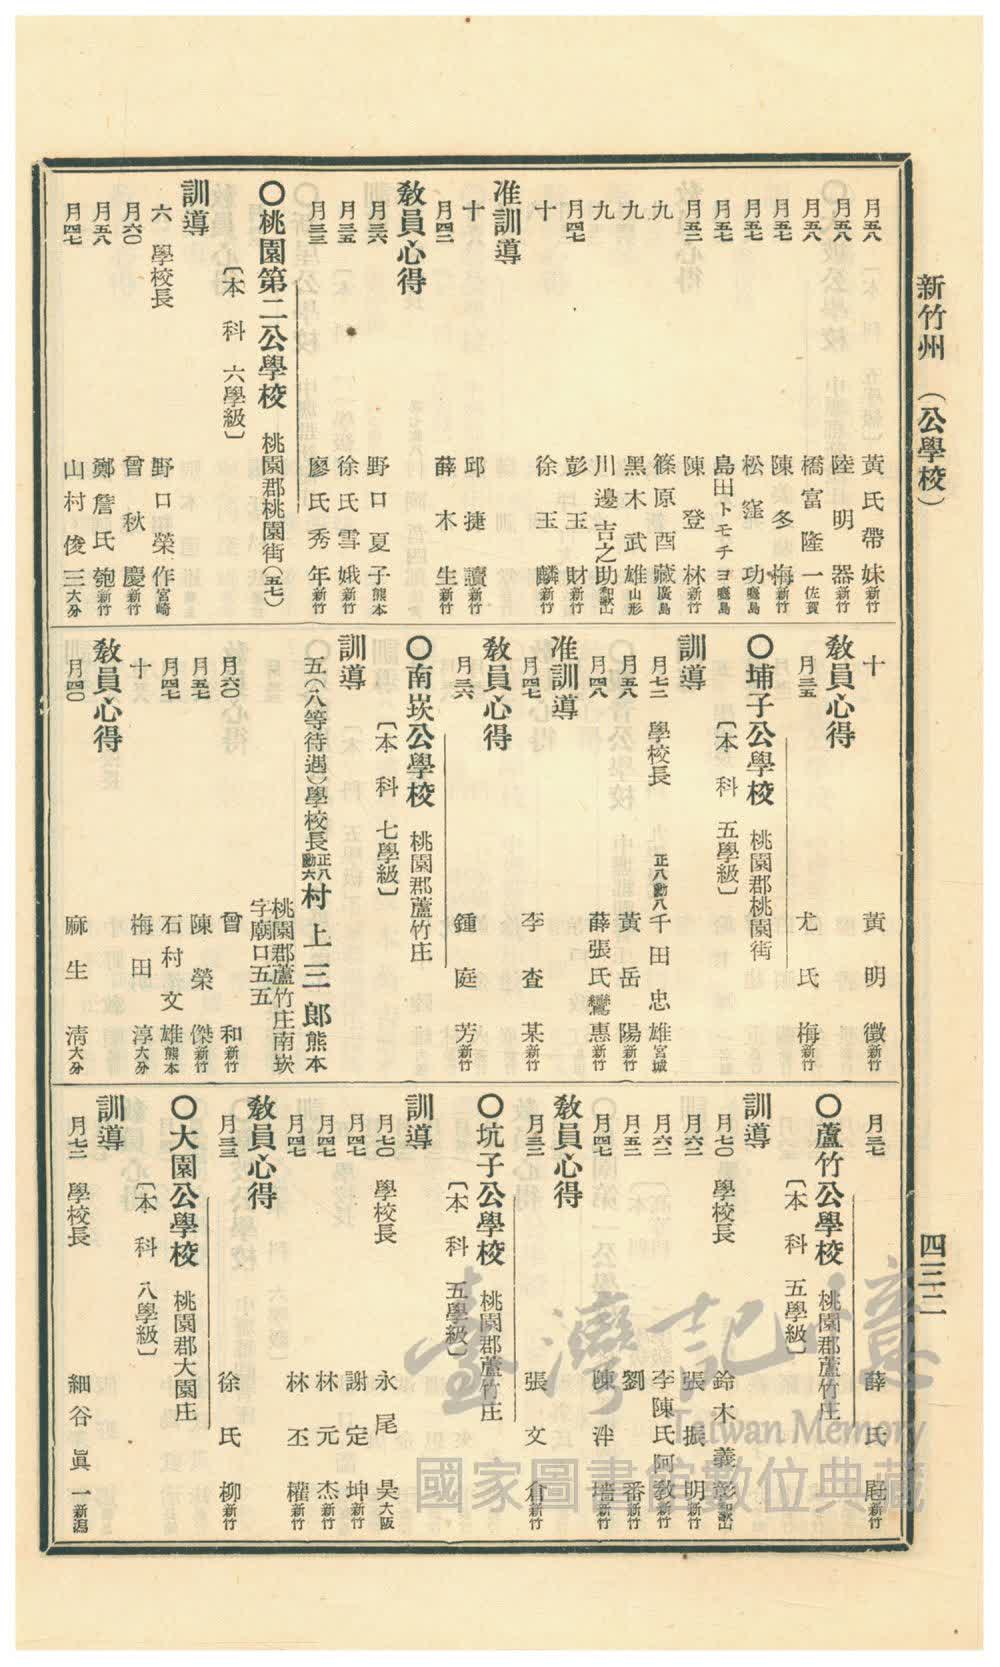 新竹州 (公學校)
四三二
月五八 黃氏帶妹 新竹
月五八 陸明器 新竹
月五八 橋富隆一 佐賀
月五七 陳冬梅 新竹
月五七 松窪功 鹿兒島
月五七 島田トモチヨ 鹿兒島
月五二 陳登林 新竹
九 篠原酉藏 廣島
九 黑木武雄 山形
九 川邊吉之助 和歌山
月四七 彭玉財 新竹
十 徐玉麟 新竹
准訓導
十 邱捷讀 新竹
月四二 薛木生 新竹
教員心得
月三六 野口夏子 熊本
月三五 徐氏雪娥 新竹
月三三 廖氏秀年 新竹
〇桃園第二公學校 桃園郡桃園街(五七)
〔本科 六學級〕
訓導
六 學校長 野口榮作 宮崎
月六〇 曾秋慶 新竹
月五八 鄭詹氏匏 新竹
月四七 山村俊三 大分
十 黃明徵 新竹
教員心得
月三五 尤氏梅 新竹
〇埔子公學校 桃園郡桃園街
〔本科 五學級〕
訓導
月七二 學校長 正八勳八 千田忠雄 宮城
月五八 黃岳陽 新竹
月四八 薛張氏鸞惠 新竹
准訓導
月四七 李查某 新竹
教員心得
月三六 鍾庭芳 新竹
〇南崁公學校 桃園郡蘆竹庄
〔本科 七學級〕
訓導
五(八等待遇)學校長 正八勳六 村上三郎 熊本
桃園郡蘆竹庄南崁
字廟口五五
月六〇 曾和 新竹
月五七 陳榮傑 新竹
月四七 石村文雄 熊本
十 梅田淳 大分
教員心得
月四〇 麻生淸 大分
月三七 薛氏 新竹
〇蘆竹公學校 桃園郡蘆竹庄
〔本科 五學級〕
訓導
月七〇 學校長 鈴木義彰 和歌山
月六二 張振明 新竹
月六二 李陳氏阿教 新竹
月五二 劉番 新竹
月四七 陳泮墻 新竹
教員心得
月三二 張文倉 新竹
〇坑子公學校 桃園郡蘆竹庄
〔本科 五學級〕
訓導
月七〇 學校長 永尾昊 大阪
月四七 謝定坤 新竹
月四七 林元杰 新竹
月四七 林丕權 新竹
教員心得
月三三 徐氏柳 新竹
〇大園公學校 桃園郡大園庄
〔本科 八學級〕
訓導
月七二 學校長 細谷眞一 新潟
臺灣記憶
Taiwan Memory
國家圖書館數位典藏